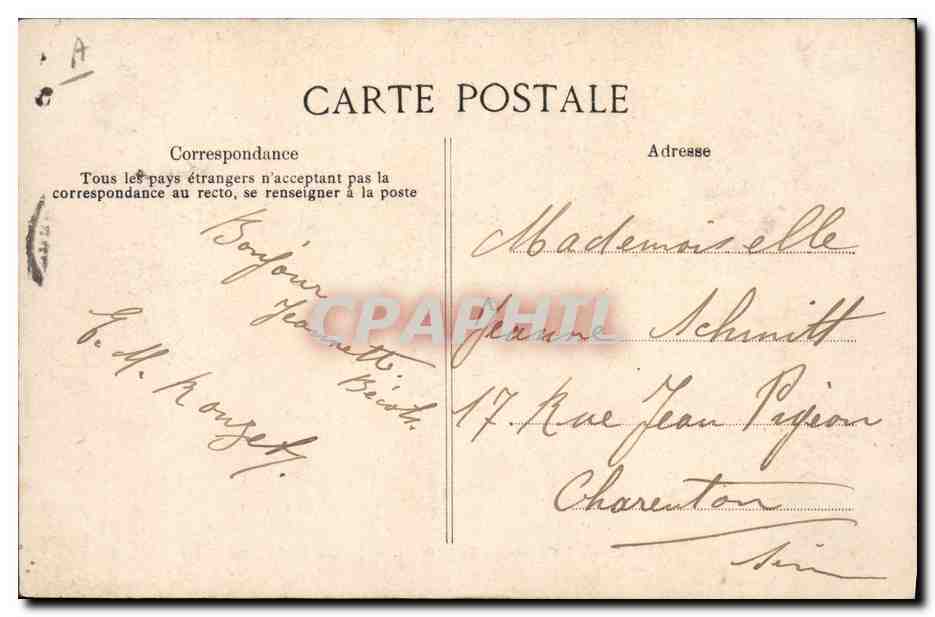 A
CARTE POSTALE
Correspondance
Tous les pays étrangers n'acceptant pas la
correspondance au recto, se renseigner à la poste
Bonjour
Jeannette.
M. Rouzet
Adresse
Mademoiselle
Jeanne Schmitt
17. Rue Jean Pigeon
Charenton
Seine
CPAPHIL